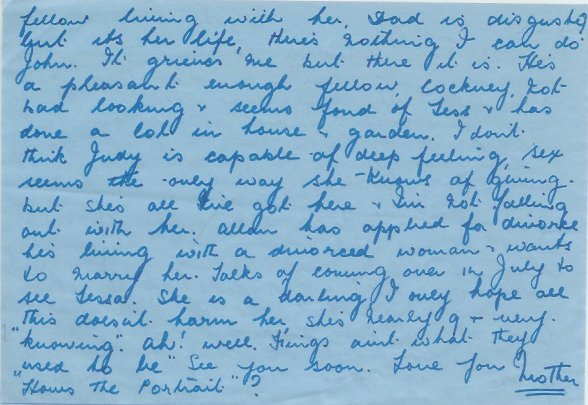 fellow living with her, Dad is disgusted
but its her life, theres nothing I can do
John. It grieves me but there it is. Hes
a pleasant enough fellow, cockney, not
bad looking & seems fond of Tess & has
done a lot in house & garden. I dont
think Judy is capable of deep feeling, sex
seems the only way she knows of giving.
but shes all I've got here & I'm not falling
out with her. Allan has applied for divorce
his living with a divorced woman & wants
to marry her. Talks of coming over in July to
see Tessa. She is a darling I only hope all
this doesnt harm her, shes nearly 9 & very.
"knowing". Ah! well. Things aint what they
used to be" See you soon. Love you
"Hows the Portrait"? Mother